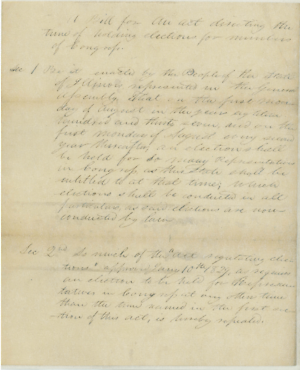 A Bill for An act directing the
time of holding elections for members
of Congress.
Sec. 1 Be it enacted by the People of the State
of Illinois represented in the General
Assembly, That on the first Monday
day of August in the year eighteen
hundred and thirty and on the
first Monday of August every
year thereafter, an election shall
be held for so many Representatives
in Congress as this State shall be
entitled to at that time, which
elections shall be conducted in all
particulars, as such elections are now
conducted by law.
Sec 2nd So much of the "act regulating elec-
tions" approved Jany 10th 1829, as requires
an election to be held for Represen-
tatives in Congress at any other time
than the time named in the first sec-
tion of this act, is hereby repealed.